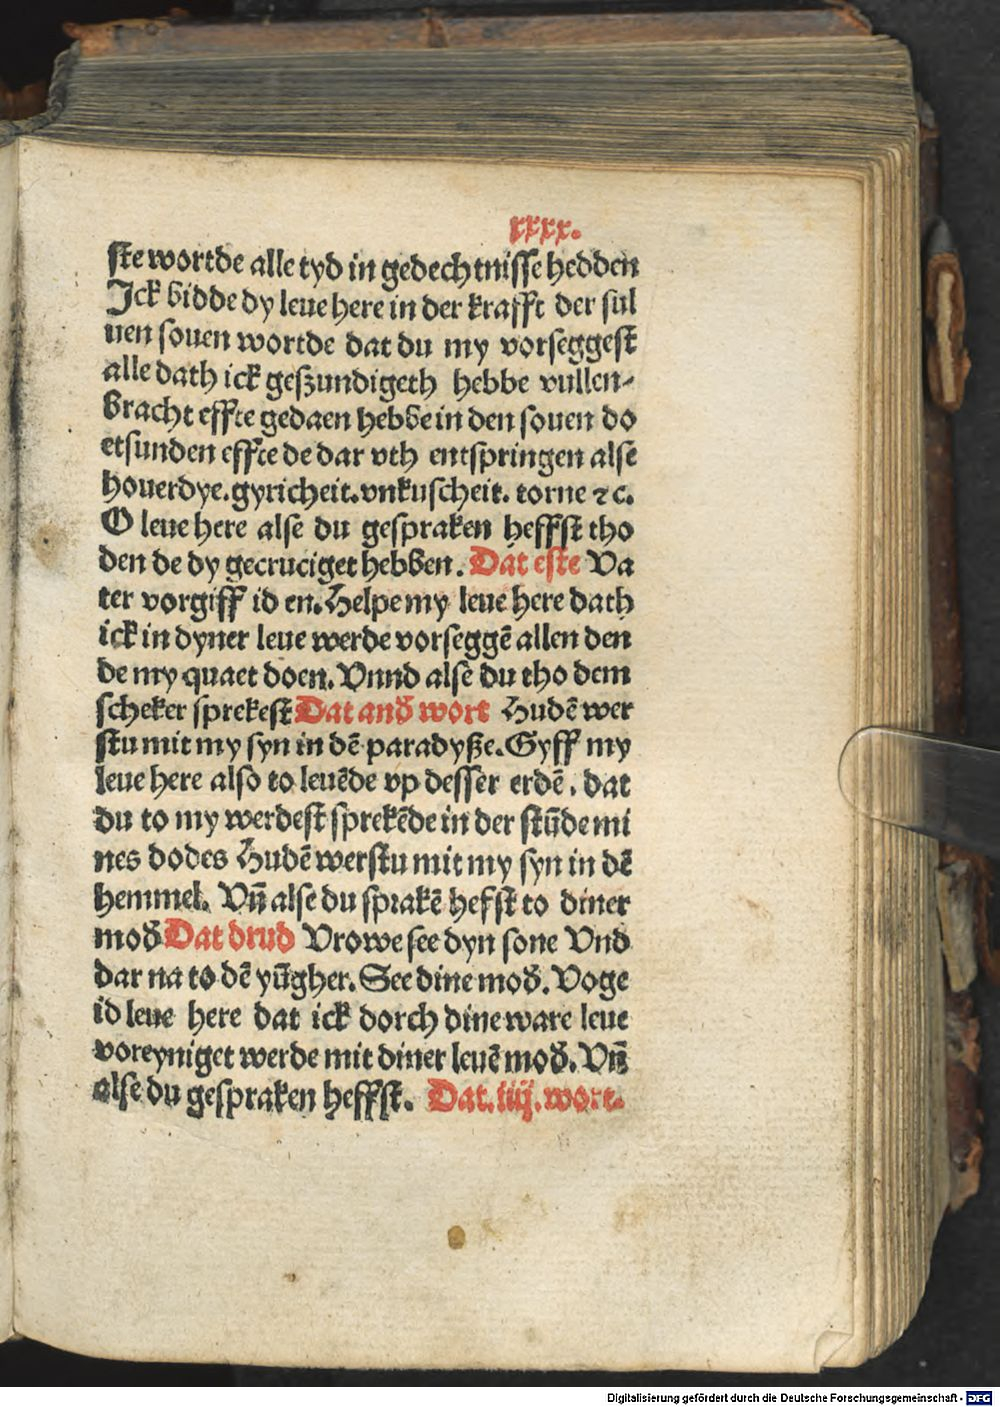 xxxx.
ste wortde alle tyd in gedechtnisse hedden
Ick bidde dy leue here in der krafft der sul
uen souen wortde dat du my vorseggest
alle dath ick geszundigeth hebbe vullen-
bracht effte gedaen hebbe in den souen do
etsunden effte de dar vth entspringen alse
houerdye. gyricheit. vnkuscheit. torne ⁊c.
O leue here alse du gespraken heffst tho
den de dy gecruciget hebben. Dat este Va
ter vorgiff id en. Helpe my leue here dath
ick in dyner leue werde vorseggē allen den
de my quaet doen. Vnnd alse du tho dem
scheker sprekest Dat anđ wort Hudē wer
stu mit my syn in dē paradyße. Gyff my
leue here also to leuēde vp desser erdē. dat
du to my werdest sprekēde in der stūde mi
nes dodes Hudē werstu mit my syn in dē
hemmel. Vn̄ alse du sprakē hefst to diner
mođ Dat drud Vrowe see dyn sone Vnd
dar na to dē yūgher. See dine mođ. Voge
id leue here dat ick dorch dine ware leue
voreyniget werde mit diner leuē mođ. Vn̄
alse du gespraken heffst. Dat. iiij. wort.
Digitalisierung gefördert durch die Deutsche Forschungsgemeinschaft - DFG